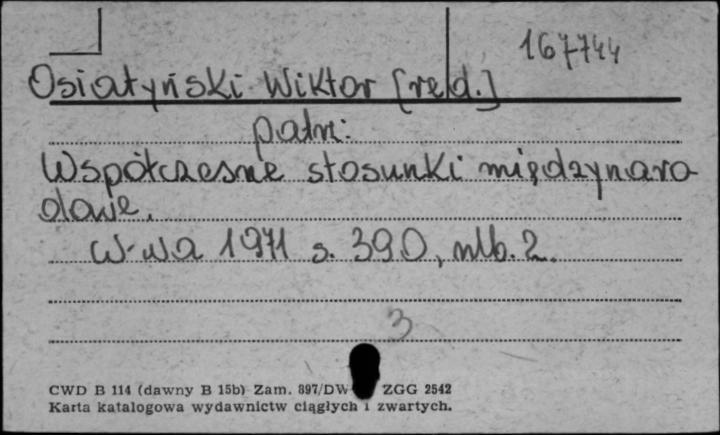 167744
Osiatyński Wiktor [red.]
patrz:
Współczesne stosunki międzynaro-
dowe.
W-wa 1971 s. 390, nlb. 2.
3
CWD B 114 (dawny B 15b) Zam. 897/DW ZGG 2542
Karta katalogowa wydawnictw ciągłych i zwartych.